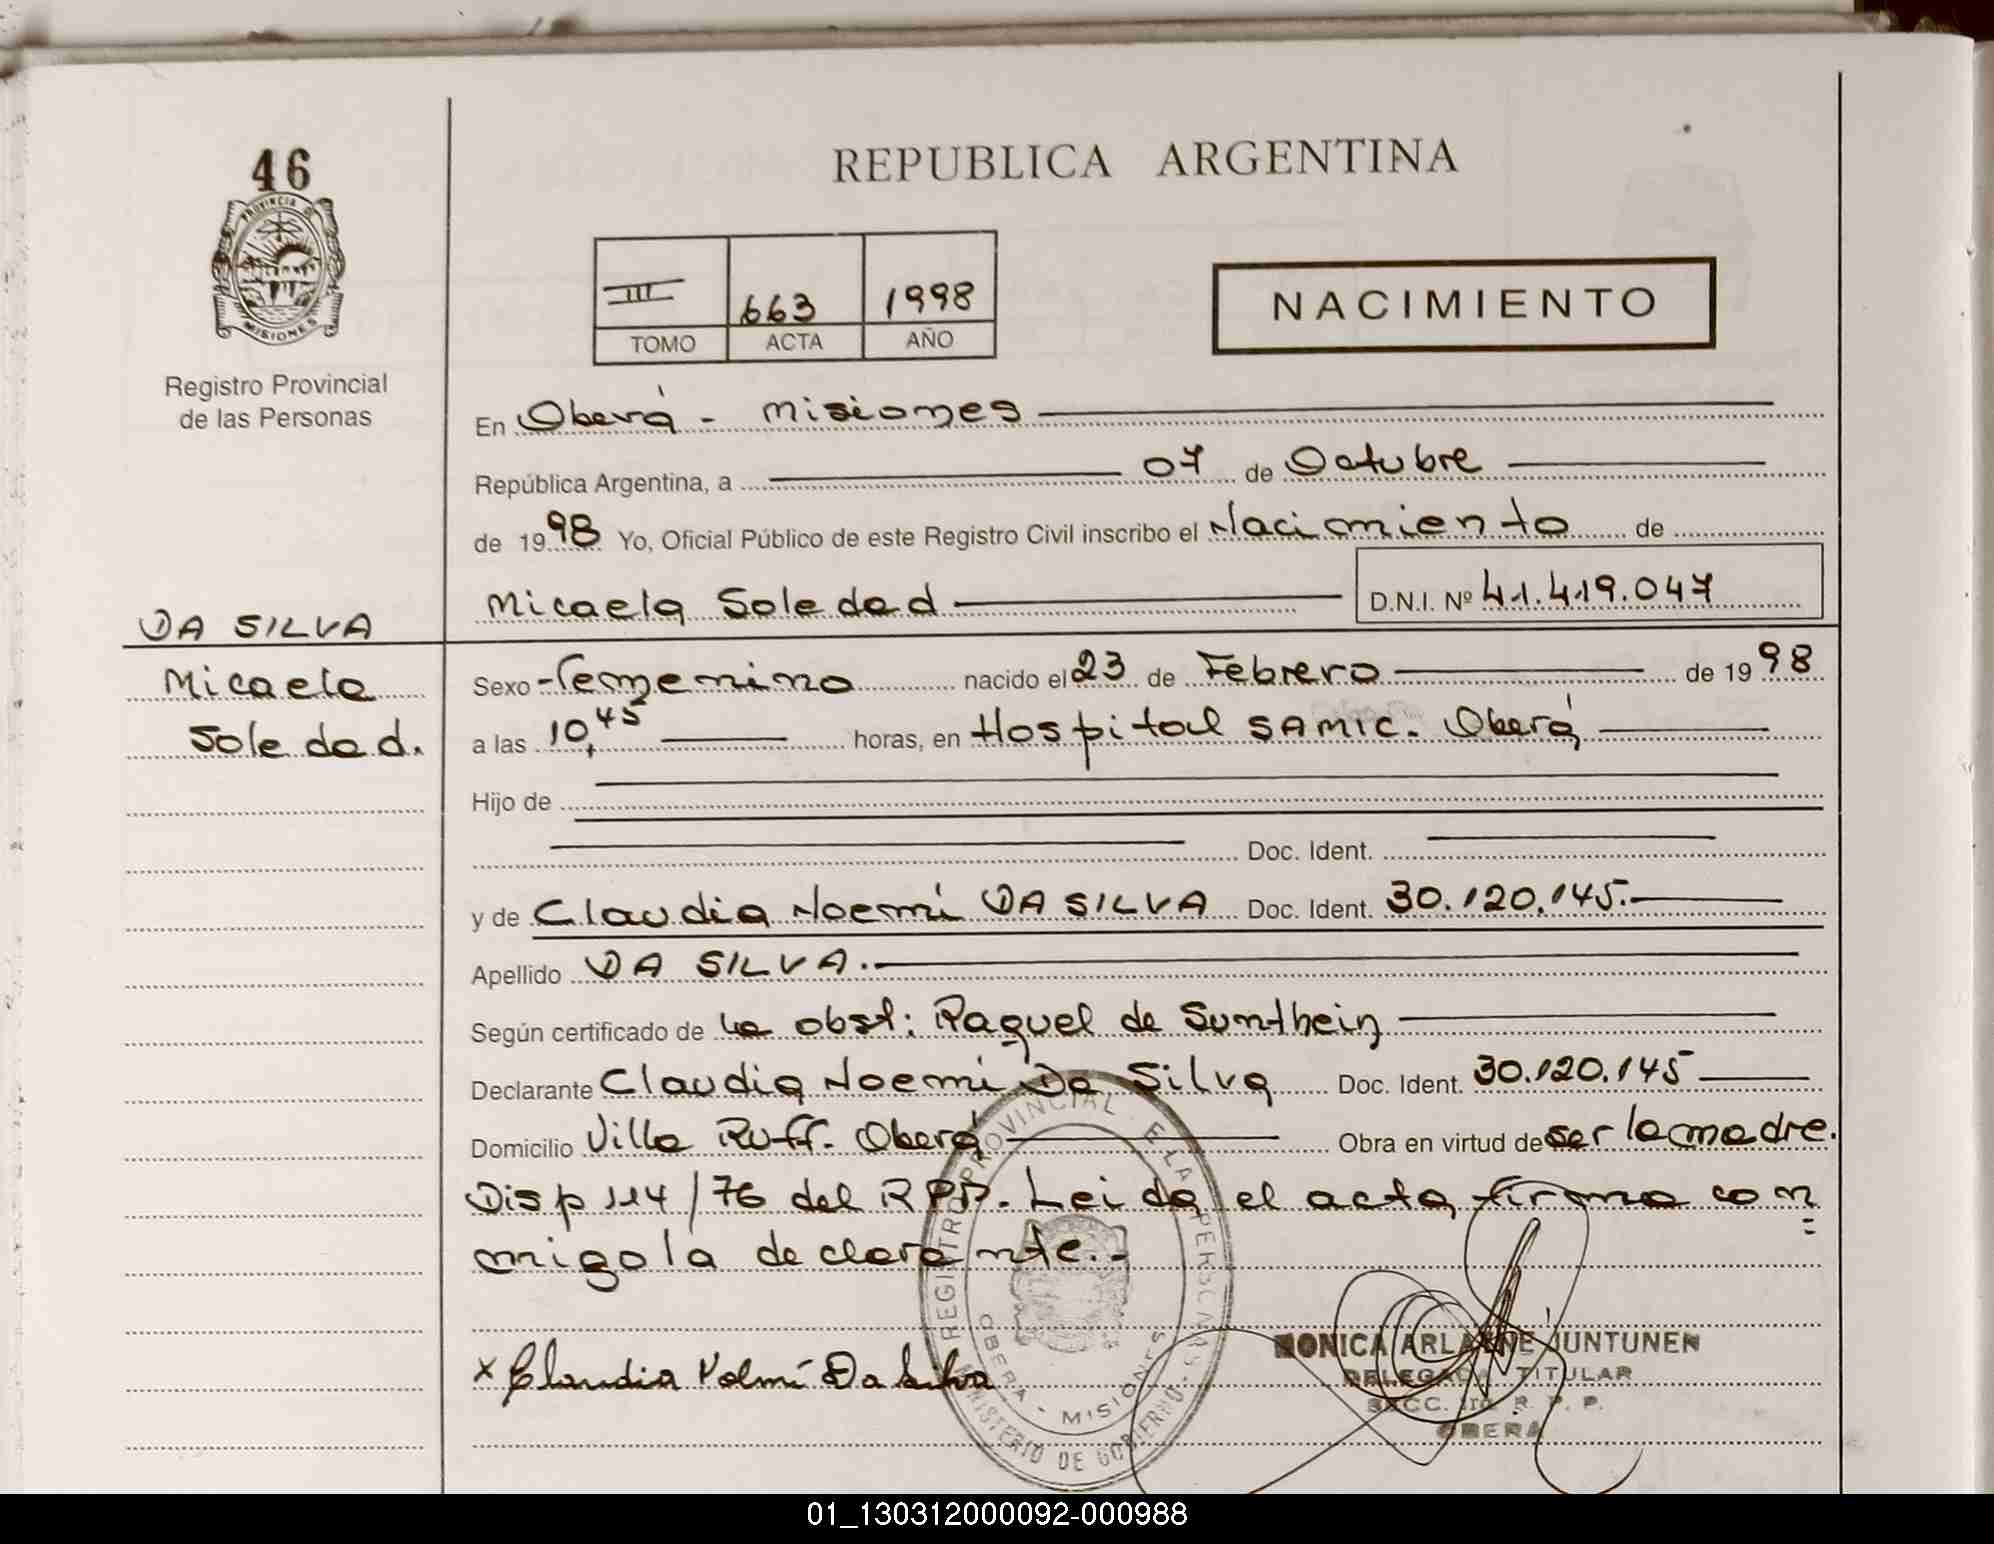 46
PROVINCIA D
MISIONES
Registro Provincial
de las Personas
REPUBLICA ARGENTINA
III 663 1998
TOMO ACTA AÑO
NACIMIENTO
En Oberá - Misiones
República Argentina, a 07 de Octubre
de 1998 Yo, Oficial Público de este Registro Civil inscribo el Nacimiento de
Micaela Soledad D.N.I. Nº 41.419.047
DA SILVA
Micaela
Soledad.
Sexo Femenino nacido el 23 de Febrero de 1998
a las 10,45 horas, en Hospital SAMIC. Oberá
Hijo de
Doc. Ident.
y de Claudia Noemí DA SILVA Doc. Ident. 30.120.145.
Apellido DA SILVA.
Según certificado de la obst: Raquel de Sunthein
Declarante Claudia Noemí Da Silva Doc. Ident. 30.120.145
Domicilio Villa Ruff. Oberá Obra en virtud de ser la madre.
Disp 114/76 del RPP. Leida el acta, firma con
migo la declarante.-
x Claudia Da Silva
REGISTRO PROVINCIAL E LA PERSONAS
OBERA - MISIONES
MINISTERIO DE GOBIERNO
MONICA ARLAENE JUNTUNEN
DELEGADA TITULAR
SECC. 1ra. R. P. P.
OBERA
01_130312000092-000988